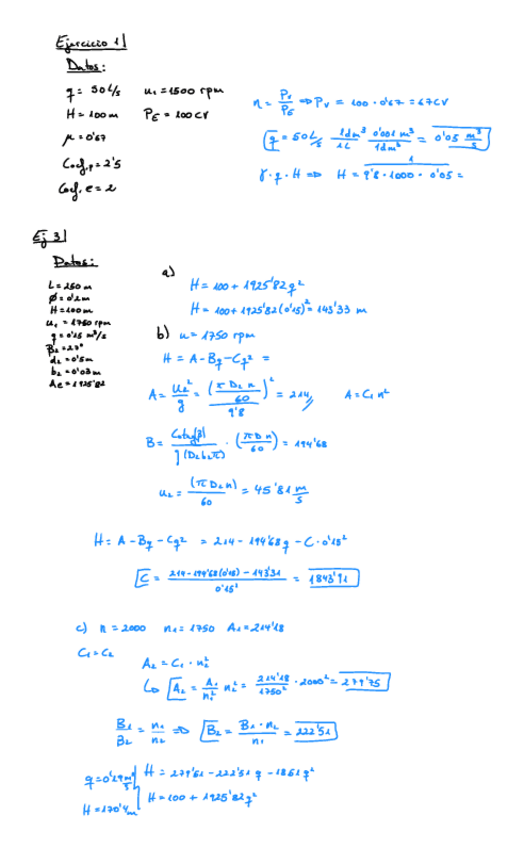 Ejercicio 1
Datos:
q = 50 L/s   n₁ = 1500 rpm
H = 100 m   P_E = 100 CV
μ = 0'67
Coef. p = 2'5
Coef. e = 2
n = Pv/P_E ⇒ Pv = 100 · 0'67 = 67 CV
q = 50 L/s · 1dm³/1L · 0'001 m³/1dm³ = 0'05 m³/s
γ · q · H ⇒ H = 1/(9'8 · 1000 · 0'05) =
Ej 3
Datos:
L = 250 m
Ø = 0'2 m
H = 100 m
n₁ = 1750 rpm
q = 0'15 m³/s
β₂ = 27°
d₂ = 0'5 m
b₂ = 0'03 m
Ae = 1925'82
a)
H = 100 + 1925'82 q²
H = 100 + 1925'82 (0'15)² = 143'33 m
b) n = 1750 rpm
H = A - Bq - Cq² =
A = u₂²/g = (π D₂ n/60)²/9'8 = 214   A = C₁ n²
B = Cotg(β)/g(D₂ b₂ π) · (π D n/60) = 194'68
u₂ = (π D₂ n)/60 = 45'81 m/s
H = A - Bq - Cq² = 214 - 194'68 q - C · 0'15²
C = (214 - 194'68 (0'15) - 143'31)/0'15² = 1843'91
c) n = 2000   n₁ = 1750   A₁ = 214'18
C₁ = C₂
A₂ = C₁ · n₂²
↳ A₂ = A₁/n₁² n₂² = 214'18/1750² · 2000² = 279'75
B₁/B₂ = n₁/n₂ ⇒ B₂ = B₁ · n₂/n₁ = 222'51
q = 0'19 m³/s   H = 279'51 - 222'51 q - 1861 q²
H = 170'4 m   H = 100 + 1925'82 q²